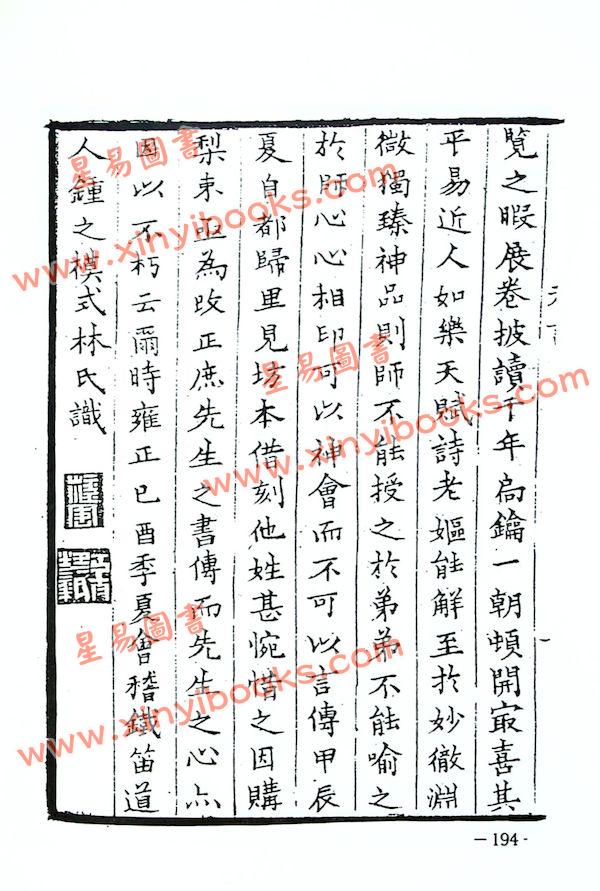 覽之暇展卷披讀千年扃鑰一朝頓開㝡喜其
平易近人如樂天賦詩老嫗能解至於妙徹淵
微獨臻神品則師不能授之於弟弟不能喻之
於師心心相印可以神會而不可以言傳甲辰
夏自都歸里見坊本借刻他姓甚惋惜之因購
梨束亟為改正庶先生之書傳而先生之心亦
因以不朽云爾時雍正己酉季夏會稽鐵笛道
人鍾之模式林氏識
星易圖書
www.xinyibooks.com
星易圖書
www.xinyibooks.com
星易圖書
www.xinyibooks.com
－194-